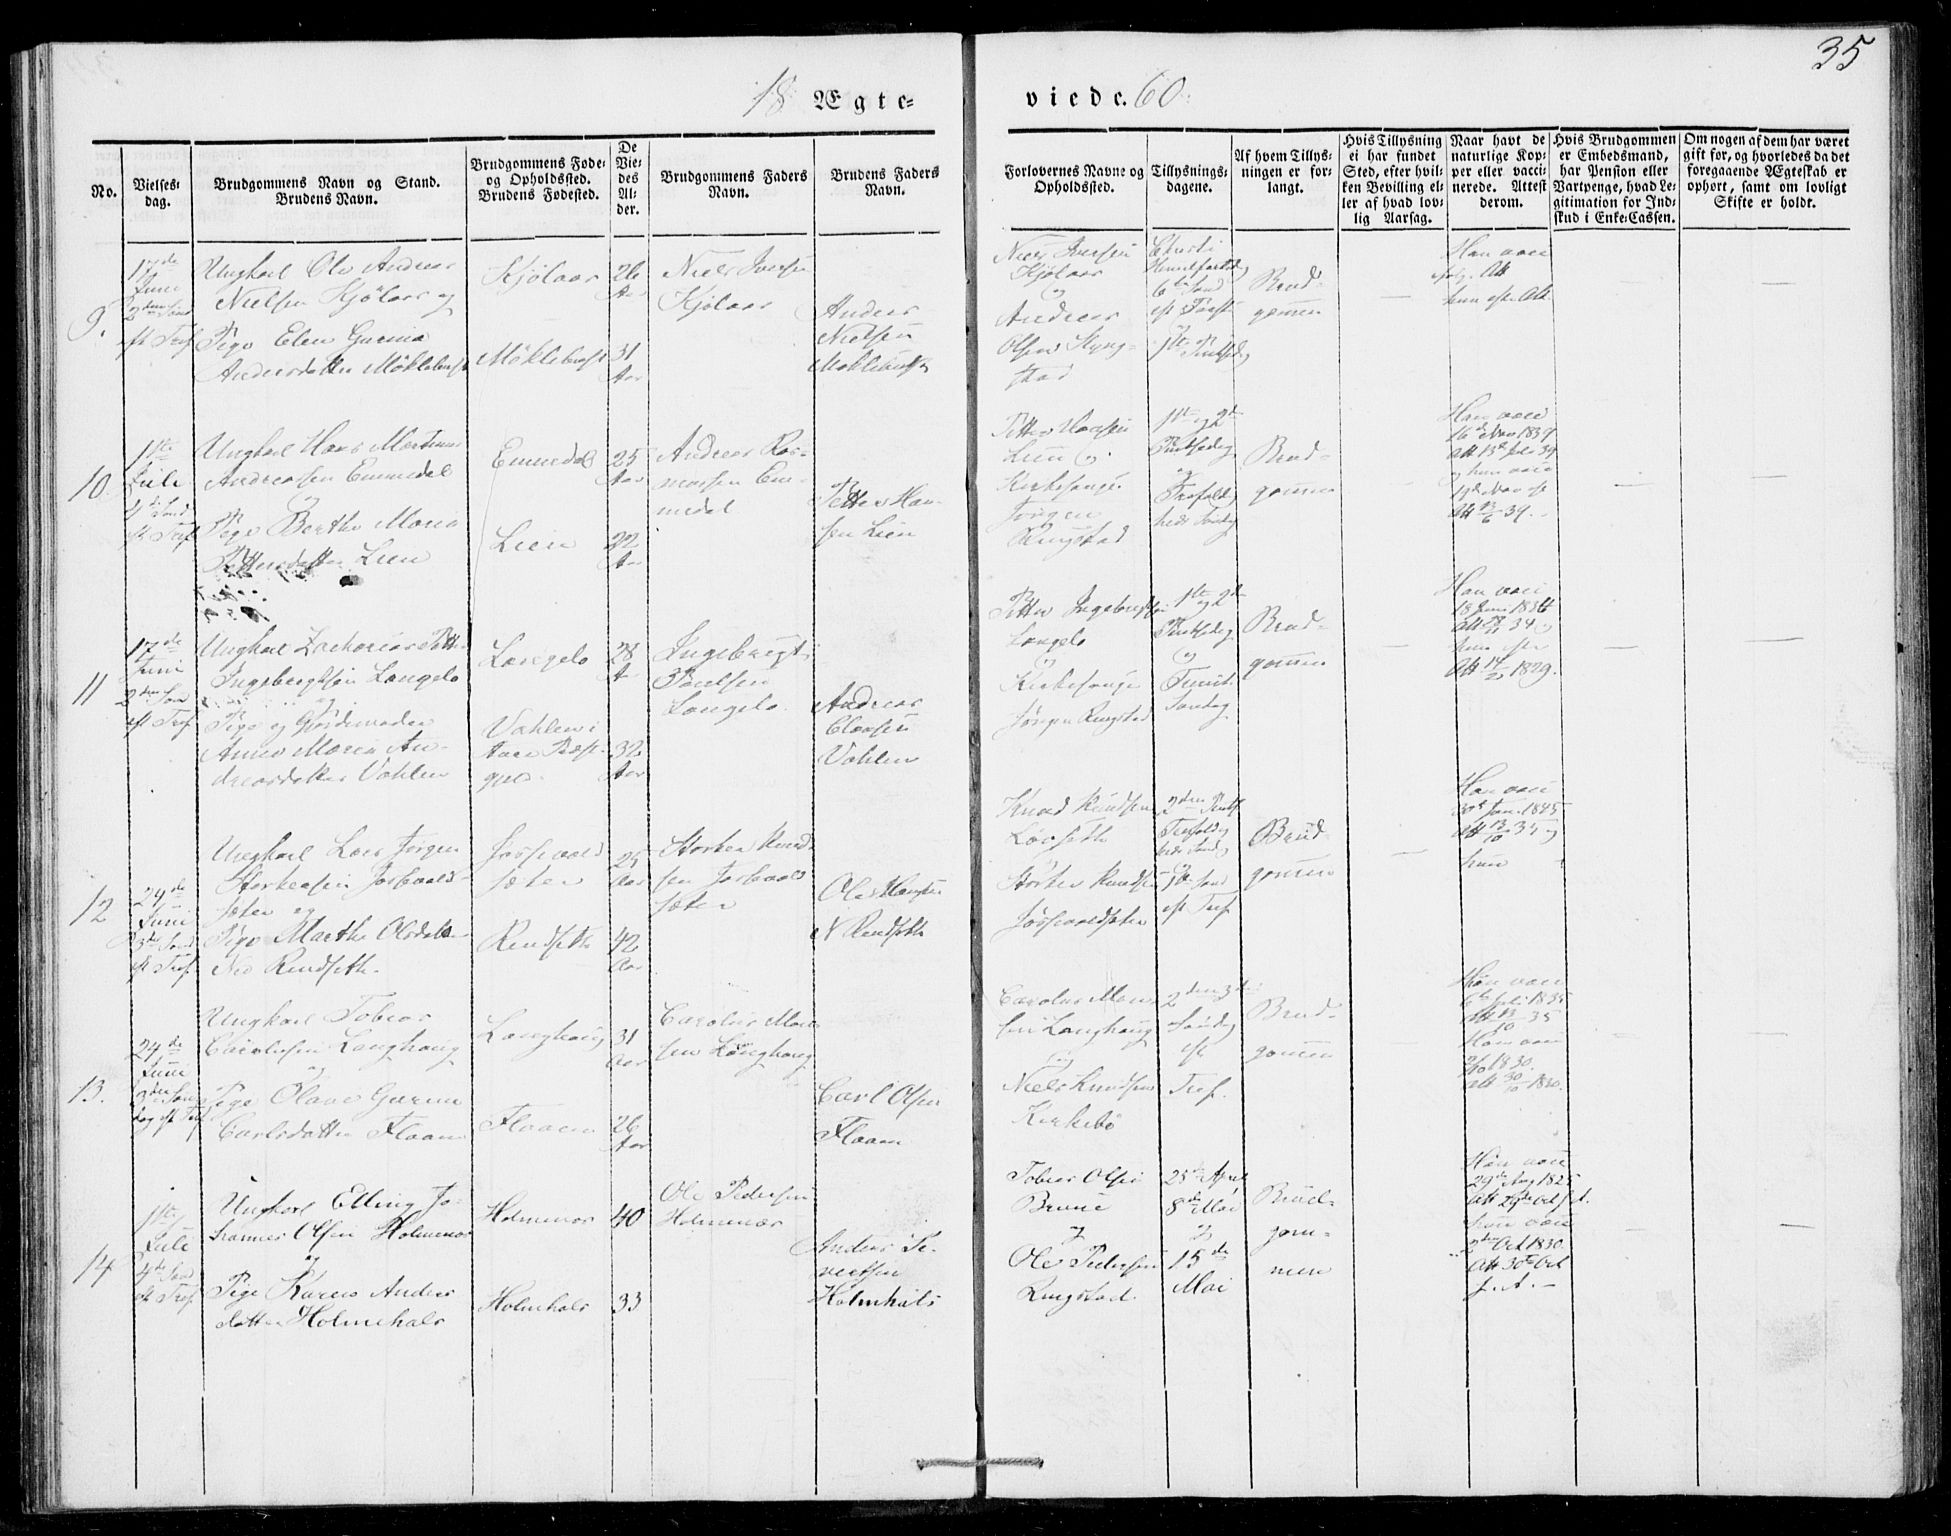 35
18 Ægte-
viede. 60.
No.
Vielses-
dag.
Brudgommens Navn og Stand.
Brudens Navn.
Brudgommens Føde-
og Opholdssted.
Brudens Fødested.
De
Vie-
des
Al-
der.
Brudgommens Faders
Navn.
Brudens Faders
Navn.
Forlovernes Navne og
Opholdssted.
Tillysnings-
dagene.
Af hvem Tillys-
ningen er for-
langt.
Hvis Tillysning
ei har fundet
Sted, efter hvil-
ken Bevilling el-
ler af hvad lov-
lig Aarsag.
Naar havt de
naturlige Kop-
per eller vacci-
nerede. Attest
derom.
Hvis Brudgommen
er Embedsmand,
har Pension eller
Vartpenge, hvad Le-
gitimation for Ind-
skud i Enke-Cassen.
Om nogen af dem har været
gift før, og hvorledes da det
foregaaende Ægteskab er
ophørt, samt om lovligt
Skifte er holdt.
9.
17de
Juni
2den Sønd
eft Tref
Ungkarl Ole Andreas
Nielsen Kjölaas og
Pige Elen Gurina
Andersdatter Möklebust
Kjölaas
Möklebust
26
Aar
31
Aar
Niels Iversen
Kjölaas
Anders
Nielsen
Möklebust
Niels Iversen
Kjölaas
og
Andreas
Olsen Ryng-
stad
Christi
Himmelfartsdag
6te Sønd
eft Paaske
og
1ste Pintsedag
Brud-
gommen
Han vacc
Att
hun eft Att
10
1ste
Juli
4de Sønd
eft Tref
Ungkarl Hans Martinus
Andreassen Emmedal
og
Pige Berthe Maria
Pettersdatter Lien
Emmedal
Lien
25
Aar
22
Aar
Andreas Ras-
mussen Em-
medal
Petter Han-
sen Lien
Petter Hansen
Lien og
Kirkesanger
Jörgen
Ringstad
1ste og 2den
Pintsedag
og
Trefoldig
heds Søndag
Brud-
gommen
Han vacc
16de Nov 1839
Att 13de Juli 39
og hun vacc
Att 13/6 39.
11
17de
Juni
2den Søn
eft Tref
Ungkarl Zacharias Petter
Ingebrigtsen Langelo
og
Pige og Gjordemoder
Anne Maria An-
dreasdatter Vahlen
Langelo
Vahlen i
Aure Præste-
gjeld
28
A
32
Aar
Ingebrigt
Poulsen
Langelo.
Andreas
Claussen
Vahlen
Petter Ingebrigtsen
Langelo
og
Kirkesanger
Jörgen Ringstad
1ste og 2den
Pintsedag
og
Trinit.
Søndag
Brud-
gommen
Han vacc
18 Juni 1834
34 og
hun eft
Att 14/2 1829.
12
24de
Juni
3die Sønd
eft Tref.
Ungkarl Lars Jörgen
Størkersen Josvalds-
sæter og
Pige Marthe Olsdatter
Nes Rendseth.
Josvalds
sæter
Rendseth
25
Aar
42
Aar
Størker Knud-
sen Josvalds
sæter
Ole Hansen
N Rendseth
Knud Knudsen
Løvseth
Størker Knudsen
Josvaldsæter
2den Pints
Trefoldig
heds Sønd
og
1ste Sønd
eft Tref
Brud-
gommen
Han vacc
30te Jan. 1845
Att 13/10 35 og
hun
13.
24de
Juni
3die Søn
dag eft Tref
Ungkarl Tobias
Carolussen Langhaug
og
Pige Olave Gurine
Carlsdatter Flaaem
Langhaug
Flaaem
31
Aar
26
Aar
Carolus Mon-
sen Langhaug
Carl Olsen
Flaaem
Carolus Mon-
sen Langhaug
og
Niels Knudsen
Kirkebö
2den 3die
Søndag
eft
Tref.
Brud-
gommen
Han vacc
6te Juli 1835
Att 13/10 35
Hun vacc
1830.
Att 30/10 1830.
14
1ste
Juli
4de Sønd
eft Tref
Ungkarl Elling Jo-
hannes Olsen Holmenæs
og
Pige Karen Anders
datter Holmehals
Holmenæs
Holmehals
40
33
Ole Pedersen
Holmenæs
Anders Si-
vertsen
Holmehals
Tobias Olsen
Brune
og
Ole Pedersen
Ringstad.
25de April
8de Mai
og
15de
Mai
Brud-
gom-
men
Han vacc
29de Aug 1825
Att 29de Oct s. A.
hun vacc
2den Oct 1830.
Att 30te Oct
s. A. -